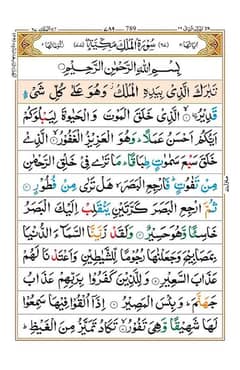 789
سُوْرَةُ الْمُلْكِ مَكِّيَّةٌ
بِسْمِ اللّٰهِ الرَّحْمٰنِ الرَّحِيْمِ
تَبٰرَكَ الَّذِىْ بِيَدِهِ الْمُلْكُ وَهُوَ عَلٰى كُلِّ شَىْءٍ
قَدِيْرُ ۨ الَّذِىْ خَلَقَ الْمَوْتَ وَ الْحَيٰوةَ لِيَبْلُوَكُمْ
اَيُّكُمْ اَحْسَنُ عَمَلًا وَهُوَ الْعَزِيْزُ الْغَفُوْرُ الَّذِىْ
خَلَقَ سَبْعَ سَمٰوٰتٍ طِبَاقًا مَا تَرٰى فِىْ خَلْقِ الرَّحْمٰنِ
مِنْ تَفٰوُتٍ فَارْجِعِ الْبَصَرَ هَلْ تَرٰى مِنْ فُطُوْرٍ
ثُمَّ ارْجِعِ الْبَصَرَ كَرَّتَيْنِ يَنْقَلِبْ اِلَيْكَ الْبَصَرُ
خَاسِئًا وَّهُوَ حَسِيْرٌ وَلَقَدْ زَيَّنَّا السَّمَآءَ الدُّنْيَا
بِمَصَابِيْحَ وَجَعَلْنٰهَا رُجُوْمًا لِّلشَّيٰطِيْنِ وَاَعْتَدْنَا لَهُمْ
عَذَابَ السَّعِيْرِ وَ لِلَّذِيْنَ كَفَرُوْا بِرَبِّهِمْ عَذَابُ
جَهَنَّمَ وَ بِئْسَ الْمَصِيْرُ اِذَآ اُلْقُوْا فِيْهَا سَمِعُوْا
لَهَا شَهِيْقًا وَّهِىَ تَفُوْرُ تَكَادُ تَمَيَّزُ مِنَ الْغَيْظِ